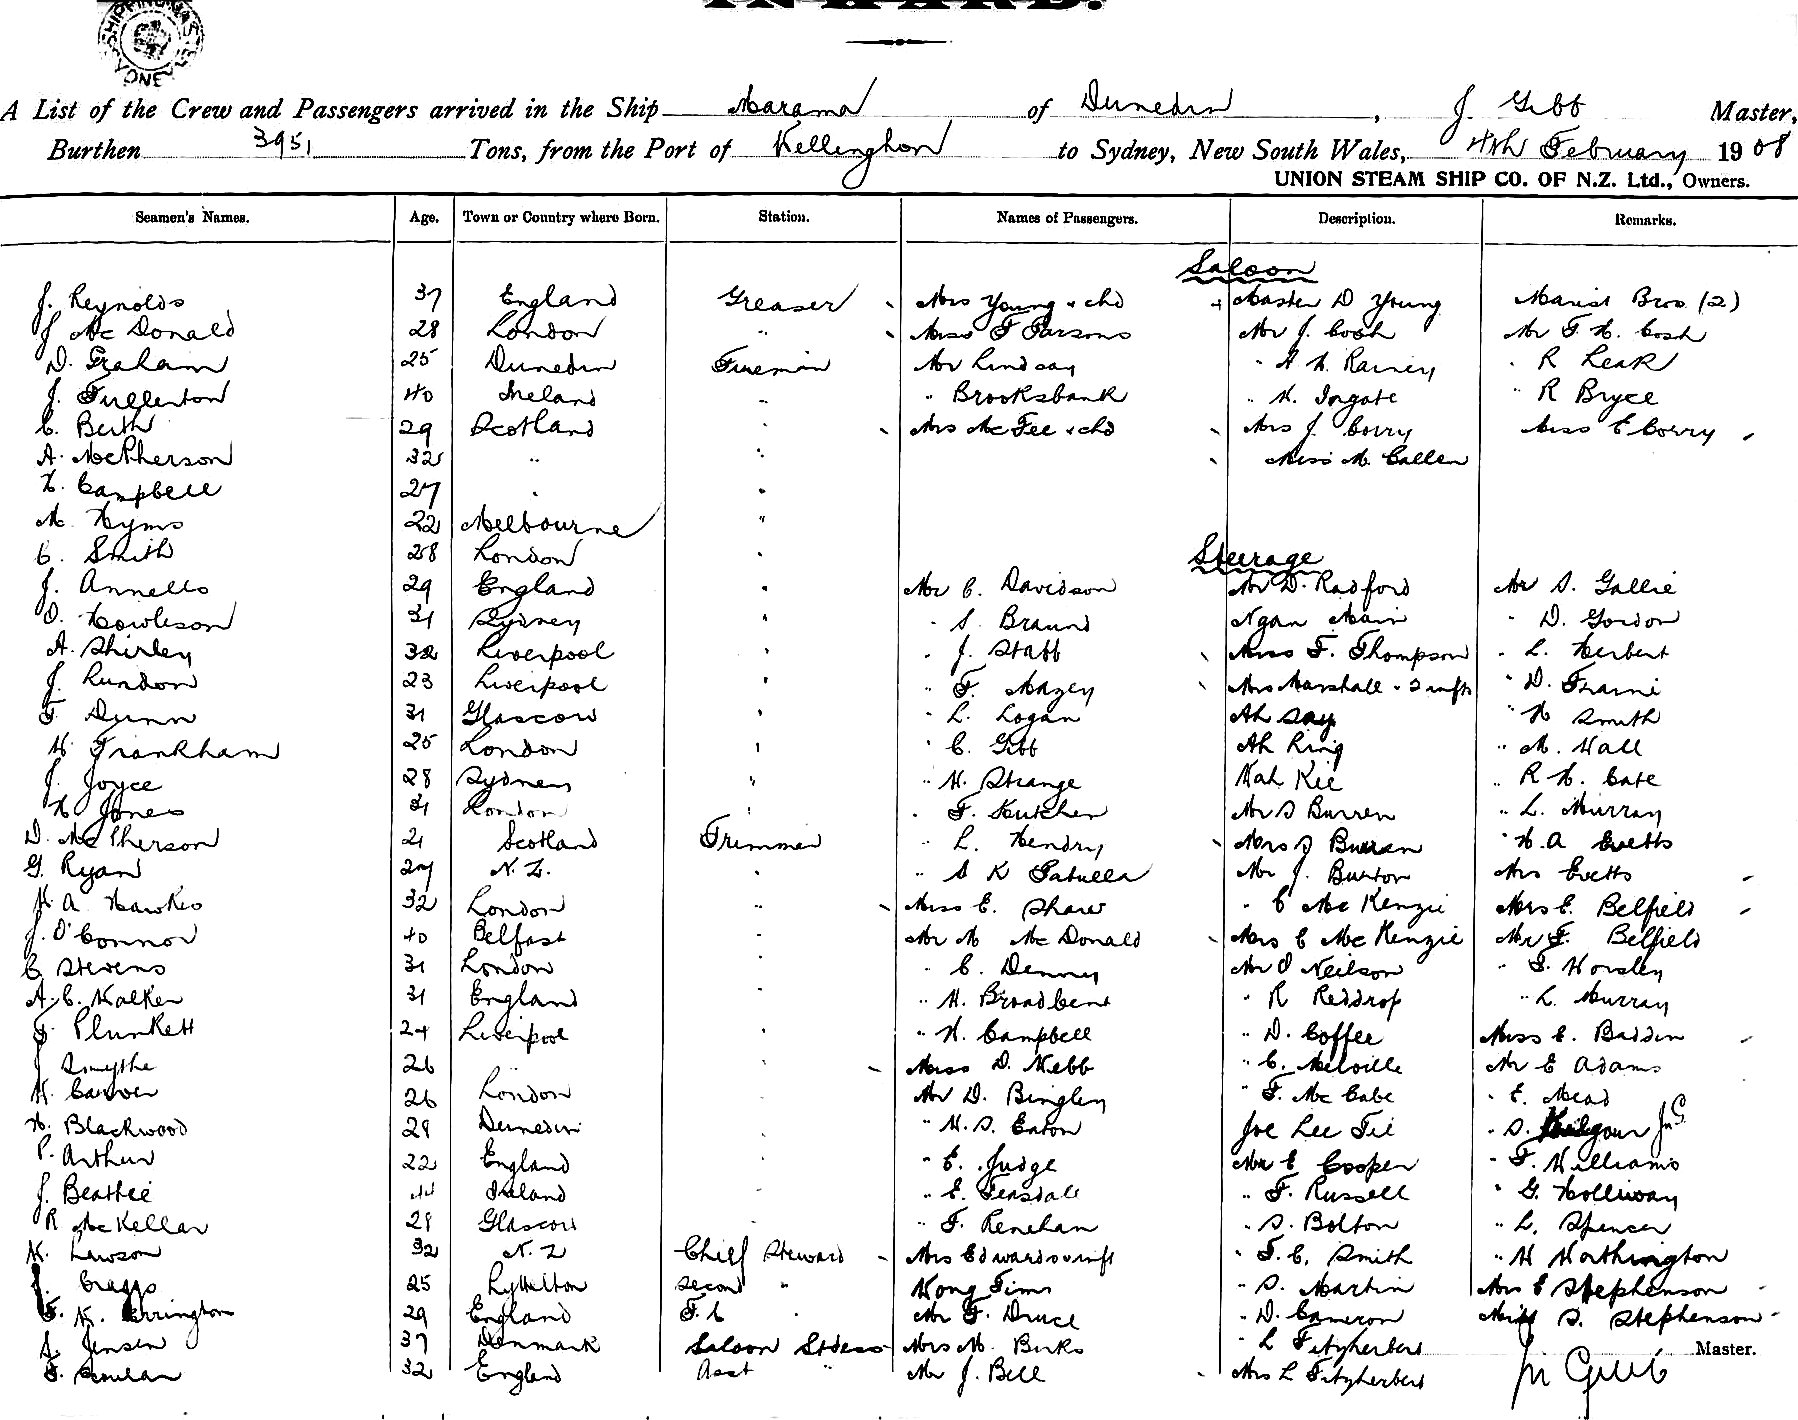 INWARD.
SHIPPING MASTER SYDNEY
A List of the Crew and Passengers arrived in the Ship Marama of Dunedin, J. Gibb Master,
Burthen 3951 Tons, from the Port of Wellington to Sydney, New South Wales, 4th February 1908
UNION STEAM SHIP CO. OF N.Z. Ltd., Owners.
Seamen's Names. Age. Town or Country where Born. Station. Names of Passengers. Description. Remarks.
Saloon
J. Reynolds 37 England Greaser Mrs Young & chd Master D Young Marist Bros (2)
J McDonald 28 London " Miss F Parsons Mr J. Cosh Mr F. H. Cosh
D. Graham 25 Dunedin Fireman Mr Lindsay " A. W. Rainey " R Leak
J. Fullerton 40 Ireland " " Brooksbank " W. Ingate " R Bryce
C. Berth 29 Scotland " Mrs McFee & chd Mrs J. Corry Miss E Corry
A. McPherson 32 " " Miss M. Callen
H. Campbell 27 " "
M. Hyms 22 Melbourne "
C. Smith 28 London "
Steerage
J. Annells 29 England " Mr C. Davidson Mr D. Radford Mr S. Gallie
O. Howleson 31 Sydney " " S. Braund Ngan Main " D. Gordon
A. Shirley 32 Liverpool " " J. Stabb Miss F. Thompson " L. Herbert
J. Rundon 23 Liverpool " " F. Mazey Mrs Marshall & 2 infts " D. Frame
F. Dunn 31 Glascow " " L. Logan Ah Say " H Smith
W. Frankham 25 London " " C. Gibb Ah Ling " M. Wall
J. Joyce 28 Sydney " " W. Strange Wah Kee " R H. Cate
H Jones 31 London " " F. Hutchen Mr S Burren " L. Murray
D. McPherson 21 Scotland Trimmer " L. Hendry Mrs S Burran " H. A Evetts
G. Ryan 27 N.Z. " " S K Patulla Mr J. Burton Mrs Evetts
W. A Hawkes 32 London " Miss E. Shaw " C McKenzie Mrs E. Belfield
J. O'Connor 40 Belfast " Mr M McDonald Mrs C McKenzie Mr F. Belfield
C Stevens 31 London " " C. Denny Mr O Neilson " F. Worsley
A. C. Walker 31 England " " W. Broadbent " R Reddrop " L. Murray
J. Plunkett 24 Liverpool " " H. Campbell " D. Coffee Miss E. Baddin
J Smythe 26 " " Miss D. Webb " C. Melville Mr E Adams
W. Carver 26 London " Mr D. Bingley " F. McCabe " E. Mead
H. Blackwood 29 Dunedin " " W. S. Eaton Joe Lee Tie " S. Kilgour JG
P. Arthur 22 England " " E. Judge Mr C Cooper " F. Williams
J. Beattie 44 Ireland " " E. Teasdale " F. Russell " G. Holliway
R McKellar 29 Glascow " " F. Renehan " S. Bolton " L. Spencer
W. Lawson 32 N.Z Chief Steward Mrs Edwards & inft " F. C. Smith " W Worthington
J. Craggs 25 Lyttelton Second " Wong Tims " S. Martin Mrs E Stephenson
F. W. Errington 29 England F. C " Mr F. Druce " D. Cameron Miss S. Stephenson
J. Jensen 37 Denmark Saloon Stdess Mrs M. Birks " L Fitzherbert Master.
F. 32 England Asst " Mr J. Bell Mrs L Fitzherbert J M Gibb